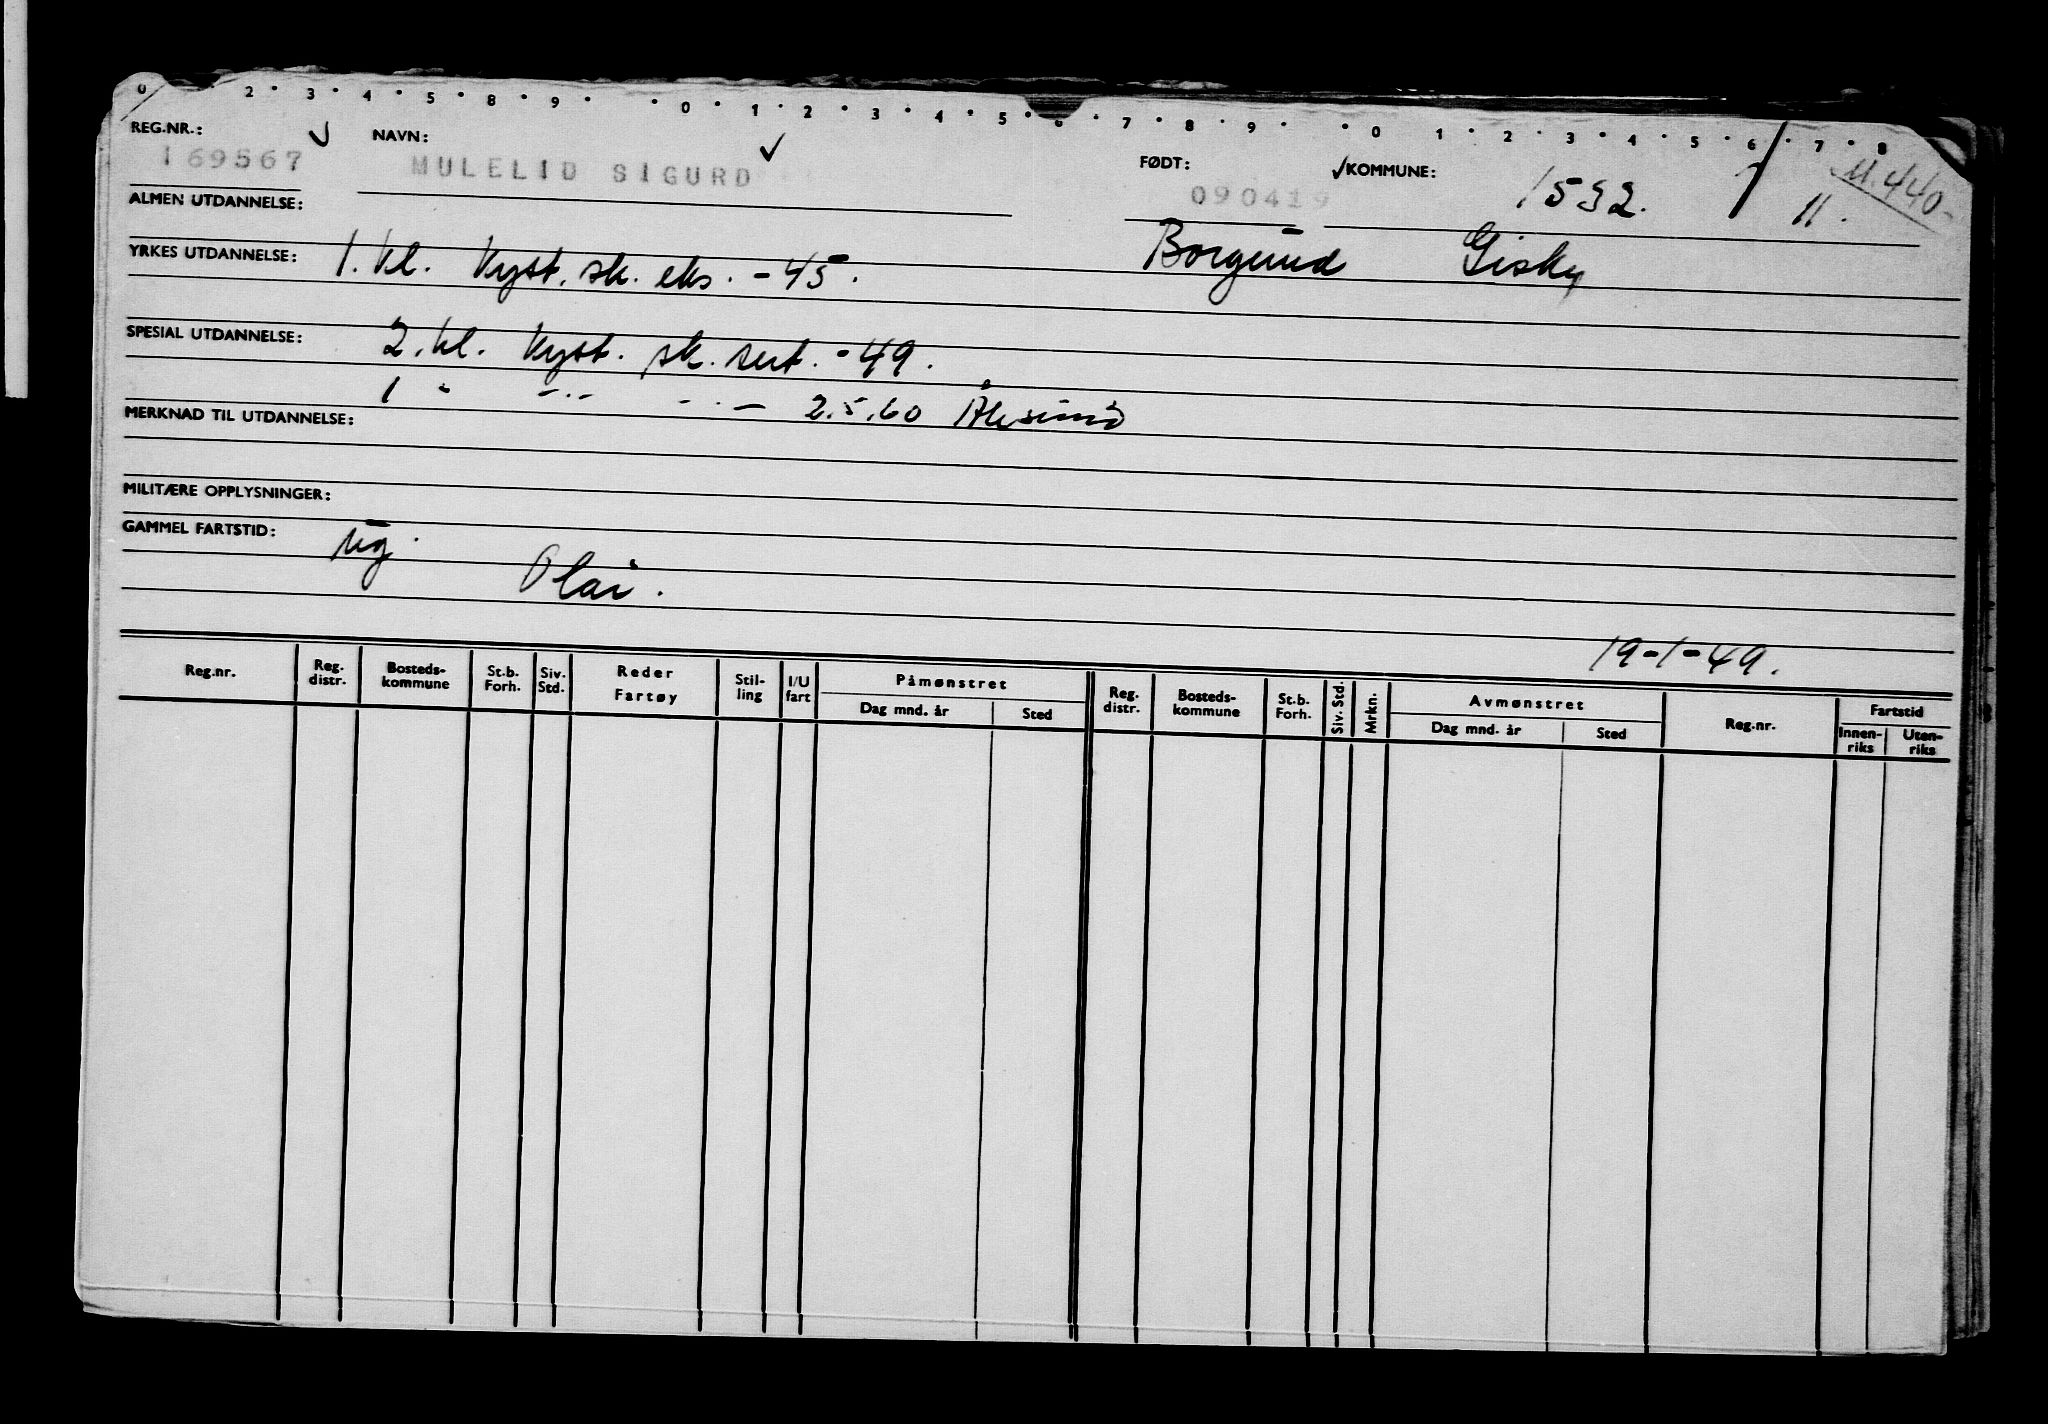 0 2 • 3 • 4 • 5 • 8 • 9 • • 0 • 1 • 2 • 3 • 4 • 5 • 6 • 7 • 8 • 9 • • 0 1 • 2 • 3 • 4 • 5 • 6 • 7 • 8
REG.NR.: ✓ NAVN: ✓ FØDT: ✓ KOMMUNE:
169567 MULELID SIGURD 090419 1532. 11. M.440-
ALMEN UTDANNELSE: Borgund Gisky
YRKES UTDANNELSE: 1. kl. kyst. sk. eks. -45.
SPESIAL UTDANNELSE: 2. kl. kyst. sk. sert. -49.
1 " -"- -"- 2.5.60 Ålesund
MERKNAD TIL UTDANNELSE:
MILITÆRE OPPLYSNINGER:
GAMMEL FARTSTID: ug.
Olai.
19-1-49.
Reg.nr. Reg. distr. Bosteds-kommune St.b. Forh. Siv. Std. Reder Fartøy Stil-ling I/U fart Påmønstret Dag mnd. år Sted Reg. distr. Bosteds-kommune St.b. Forh. Siv. Std. Mrkn. Avmønstret Dag mnd. år Sted Reg.nr. Fartstid Innen-riks Uten-riks